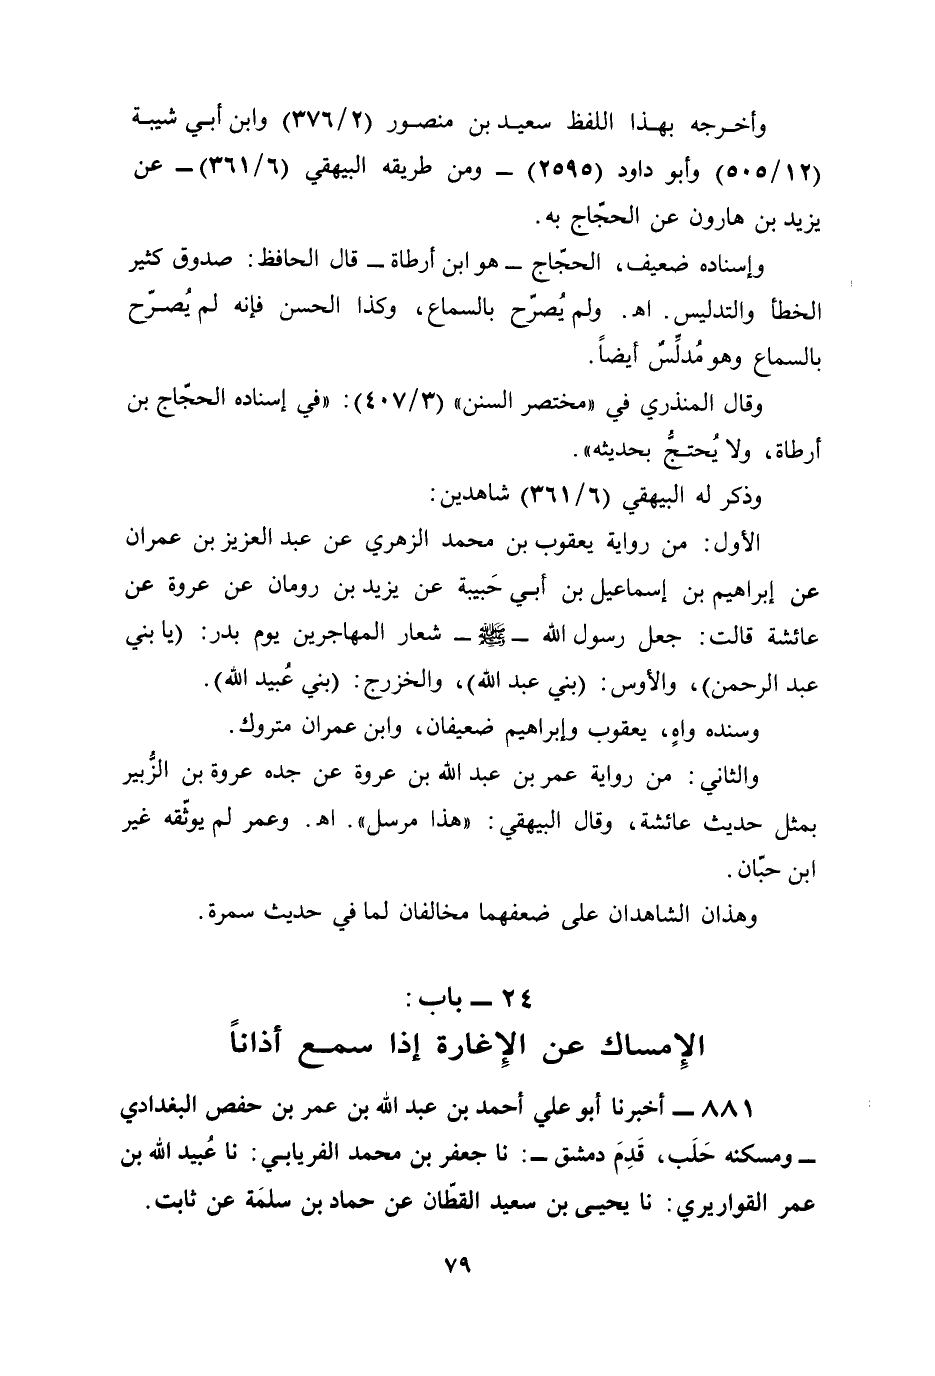 وأخرجه بهذا اللفظ سعيد بن منصور (٣٧٦/٢) وابن أبي شيبة
(٥٠٥/١٢) وأبو داود (٢٥٩٥) ــ ومن طريقه البيهقي (٣٦١/٦) ــ عن
يزيد بن هارون عن الحجّاج به.
وإسناده ضعيف، الحجّاج ــ هو ابن أرطاة ــ قال الحافظ: صدوق كثير
الخطأ والتدليس. اهـ. ولم يُصرّح بالسماع، وكذا الحسن فإنه لم يُصرّح
بالسماع وهو مُدلِّسٌ أيضاً.
وقال المنذري في «مختصر السنن» (٤٠٧/٣): «في إسناده الحجّاج بن
أرطاة، ولا يُحتجُّ بحديثه».
وذكر له البيهقي (٣٦١/٦) شاهدين:
الأول: من رواية يعقوب بن محمد الزهري عن عبد العزيز بن عمران
عن إبراهيم بن إسماعيل بن أبي حَبيبة عن يزيد بن رومان عن عروة عن
عائشة قالت: جعل رسول الله ــ ﷺ ــ شعار المهاجرين يوم بدر: (يا بني
عبد الرحمن)، والأوس: (بني عبد الله)، والخزرج: (بني عُبيد الله).
وسنده واهٍ، يعقوب وإبراهيم ضعيفان، وابن عمران متروك.
والثاني: من رواية عمر بن عبد الله بن عروة عن جده عروة بن الزُّبير
بمثل حديث عائشة، وقال البيهقي: «هذا مرسل». اهـ. وعمر لم يوثّقه غير
ابن حبّان.
وهذان الشاهدان على ضعفهما مخالفان لما في حديث سمرة.
٢٤ ــ باب:
الإمساك عن الإغارة إذا سمع أذاناً
٨٨١ ــ أخبرنا أبو علي أحمد بن عبد الله بن عمر بن حفص البغدادي
ــ ومسكنه حَلَب، قَدِمَ دمشق ــ: نا جعفر بن محمد الفريابي: نا عُبيد الله بن
عمر القواريري: نا يحيى بن سعيد القطّان عن حماد بن سلمَة عن ثابت.
٧٩